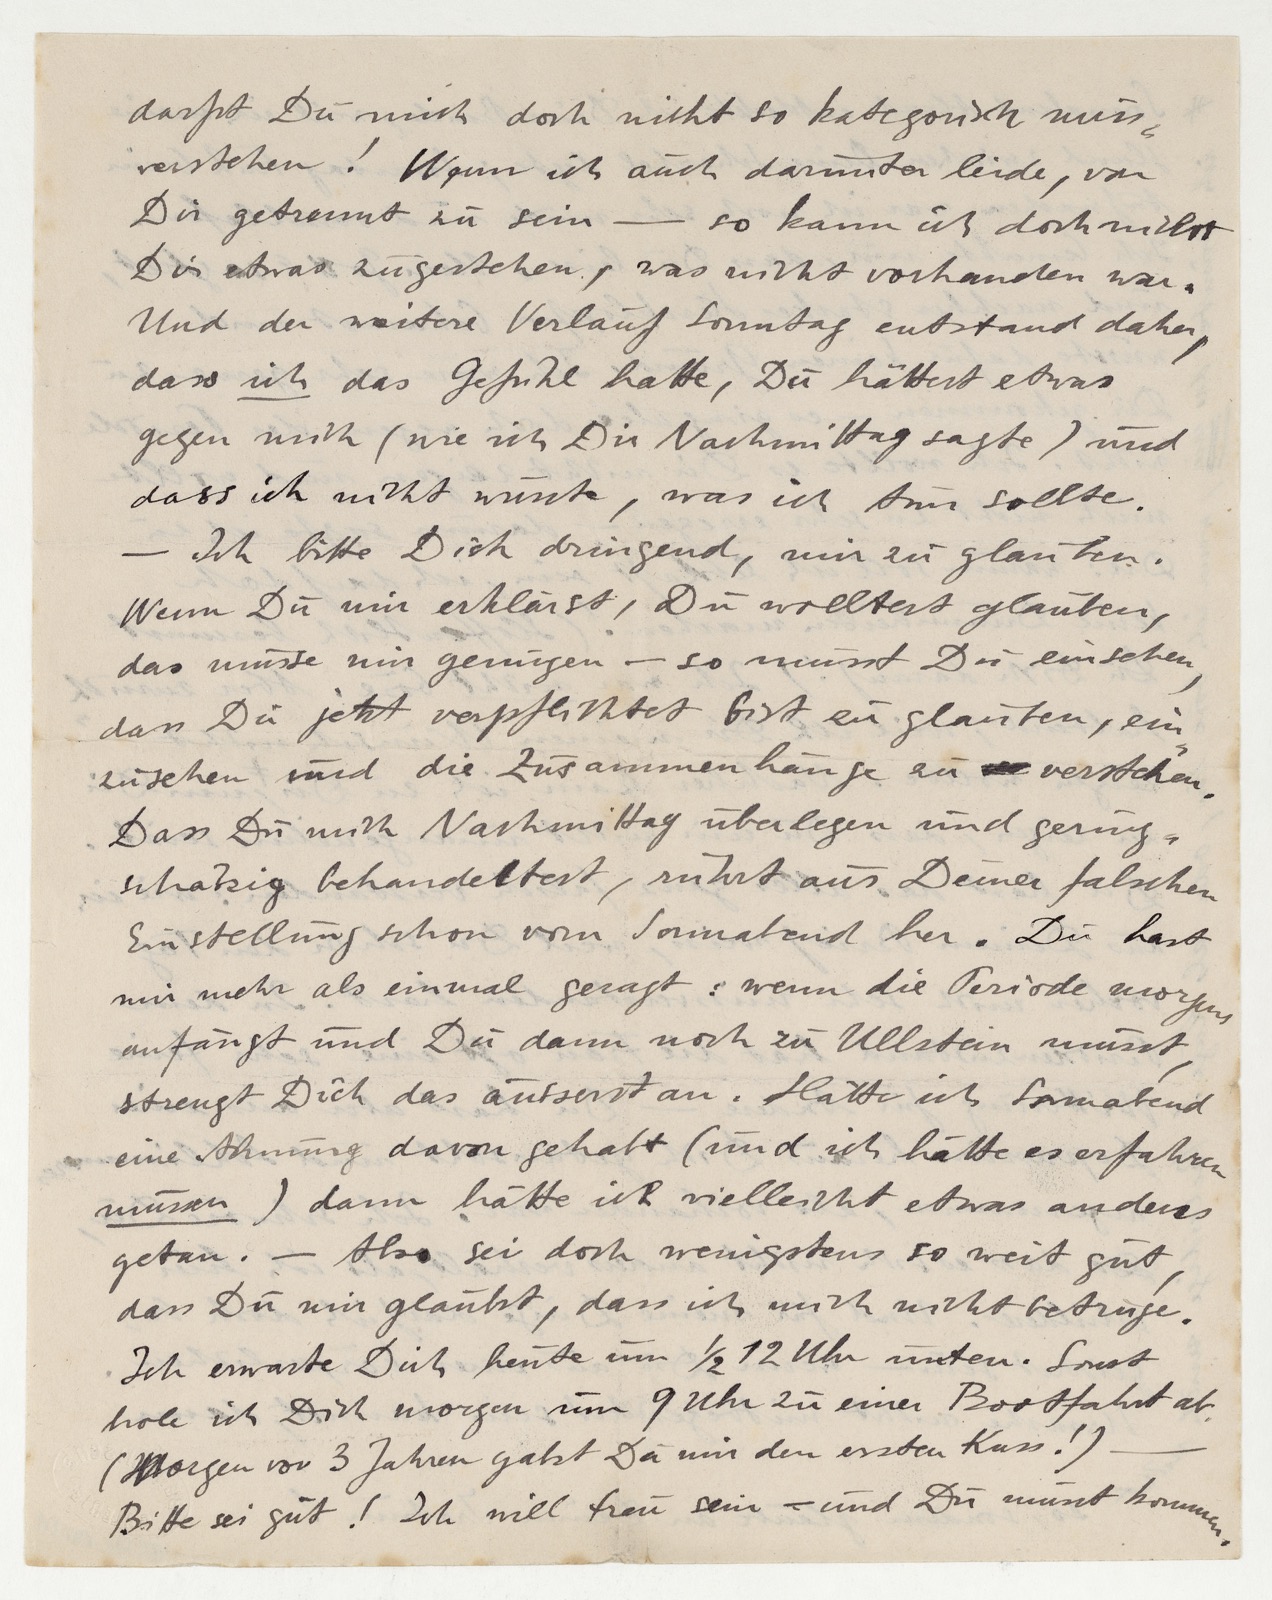 darfst Du mich doch nicht so kategorisch miss-
verstehen! Wenn ich auch darunter leide, von
Dir getrennt zu sein — so kann ich doch nicht
Dir etwas zugestehen, was nicht vorhanden war.
Und der weitere Verlauf Sonntag entstand daher,
dass ich das Gefühl hatte, Du hättest etwas
gegen mich (wie ich Dir Nachmittag sagte) und
dass ich nicht wusste, was ich tun sollte.
— Ich bitte Dich dringend, mir zu glauben.
Wenn Du mir erklärst, Du wolltest glauben,
das müsse mir genügen — so musst Du einsehen,
dass Du jetzt verpflichtet bist zu glauben, ein-
zusehen und die Zusammenhänge zu verstehen.
Dass Du mich Nachmittag überlegen und gering-
schätzig behandeltest, rührt aus Deiner falschen
Einstellung schon vom Sonnabend her. Du hast
mir mehr als einmal gesagt: wenn die Periode morgens
anfängt und Du dann noch zu Ullstein musst,
strengt Dich das äusserst an. Hätte ich Sonnabend
eine Ahnung davon gehabt (und ich hätte es erfahren
müssen) dann hätte ich vielleicht etwas anderes
getan. — Also sei doch wenigstens so weit gut,
dass Du mir glaubst, dass ich mich nicht betrüge.
Ich erwarte Dich heute um ½ 12 Uhr unten. Sonst
hole ich Dich morgen um 9 Uhr zu einer Bootfahrt ab.
(Morgen vor 3 Jahren gabst Du mir den ersten Kuss!) —
Bitte sei gut! Ich will treu sein — und Du musst kommen.